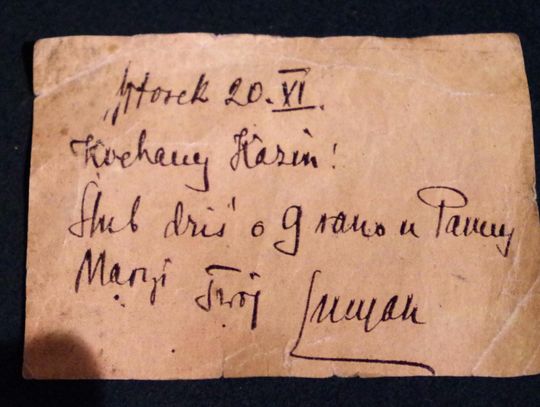 Wtorek 20.XI.
Kochany Kaziu!
Ślub dziś o 9 rano u Panny
Maryi Twój Lucyan